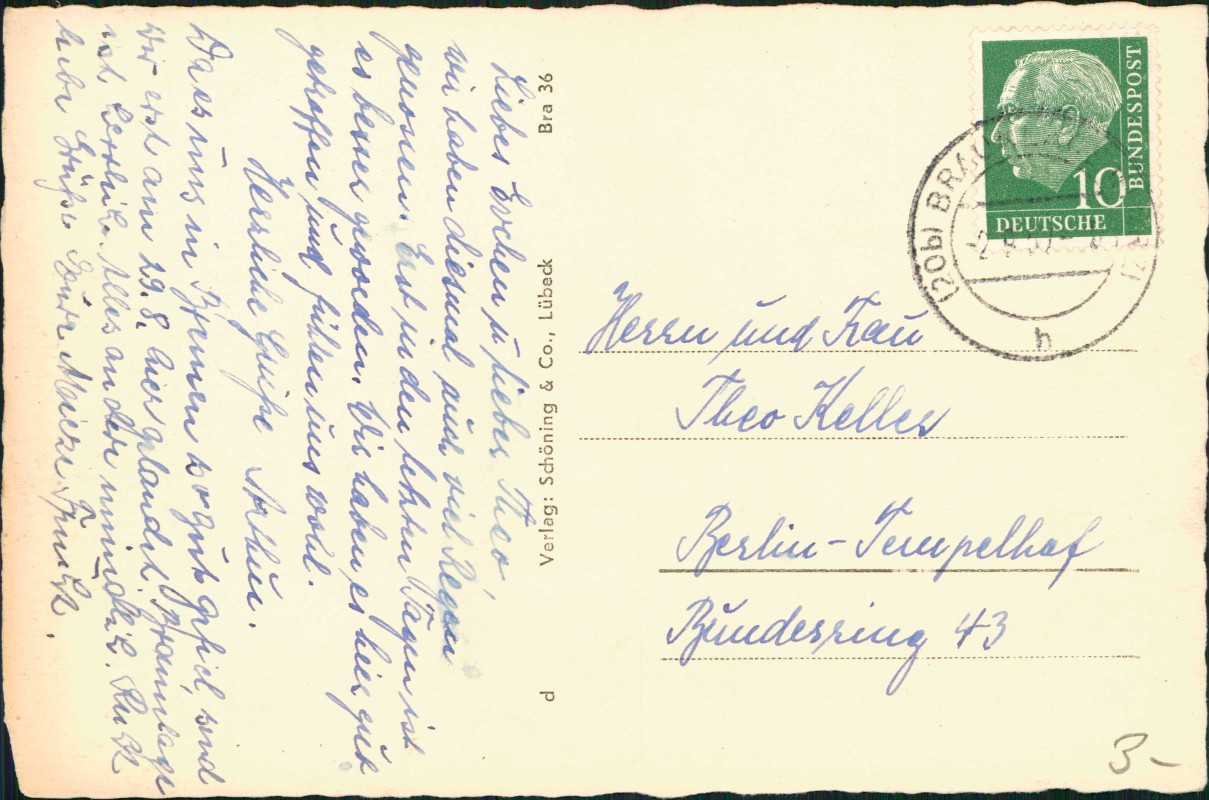 Liebes Evchen u lieber Theo!
wir haben diesmal auch viel Regen
genossen. Erst in den letzten Tagen ist
es besser geworden. Wir haben es hier gut
getroffen und fühlen uns wohl.
Herzliche Grüße Arthur.
Da es uns in Bremen so gut gefiel sind
wir erst am 29.8. hier gelandet. Braunlage
ist herrlich. Alles andere mündlich.
liebe Grüße Eure Mieze
Bra 36
Verlag: Schöning & Co., Lübeck
d
DEUTSCHE
BUNDESPOST
10
(20b) BRAU
h
Herrn und Frau
Theo Keller
Berlin-Tempelhof
Bundesring 43
3-